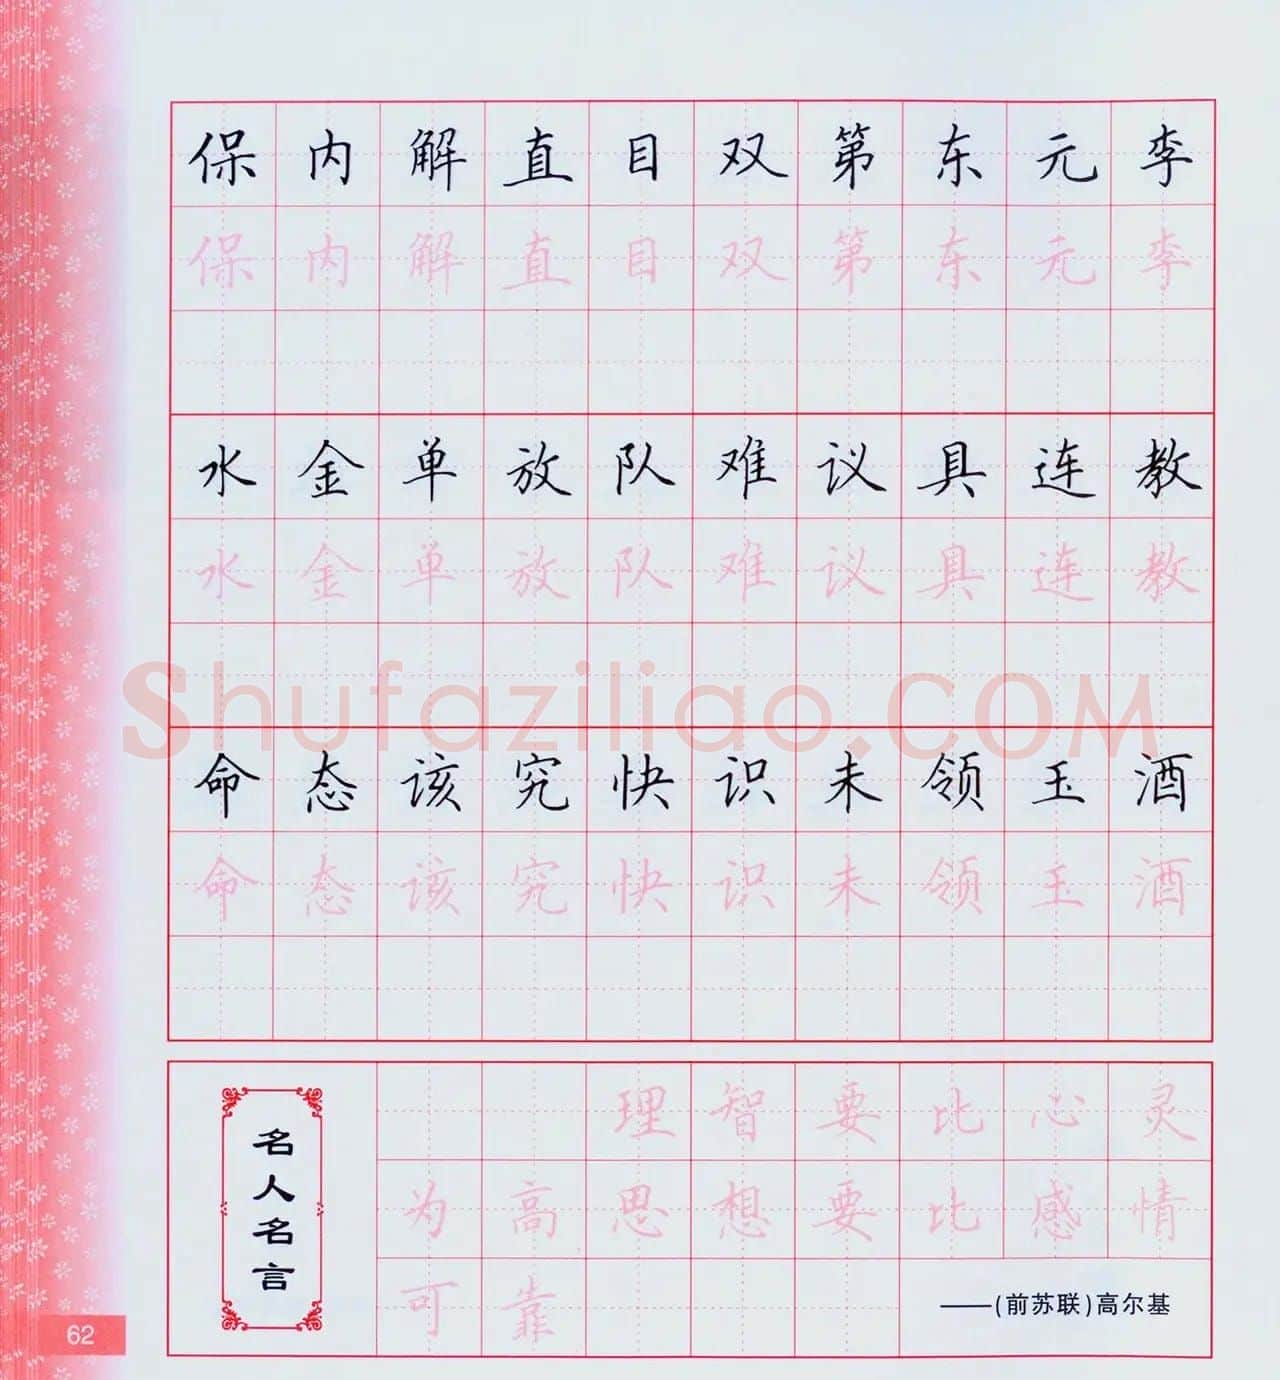 保内解直目双第东元李
保内解直目双第东元李
水金单放队难议具连教
水金单放队难议具连教
Shufaziliao.COM
命态该究快识未领玉酒
命态该究快识未领玉酒
名人名言
理智要比心灵
为高思想要比感情
可靠
——(前苏联)高尔基
62